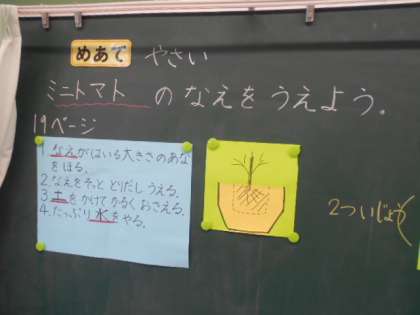 めあて やさい
ミニトマト のなえをうえよう。
19ページ
1.なえがはいる大きさのあな
をほる。
2.なえをそっと とりだしうえる。
3.土をかけてかるくおさえる。
4.たっぷり水をやる。
2ついじょう